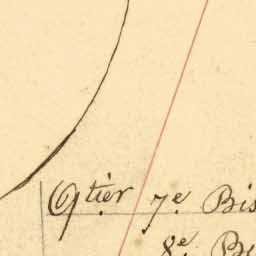 Qtier 7e Bis
8e B